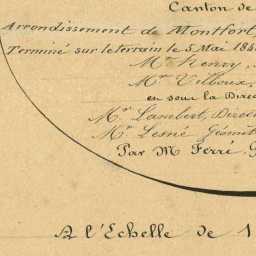 Canton de
Arrondissement de Montfort,
Terminé sur le terrain le 5 Mai 184
Mr. henry,
Mr. Villoux,
en sous la Direc
Mr. Lambert, Direct
Mr. Lesné Géomèt
Par M Ferré, G
A l'Echelle de 1